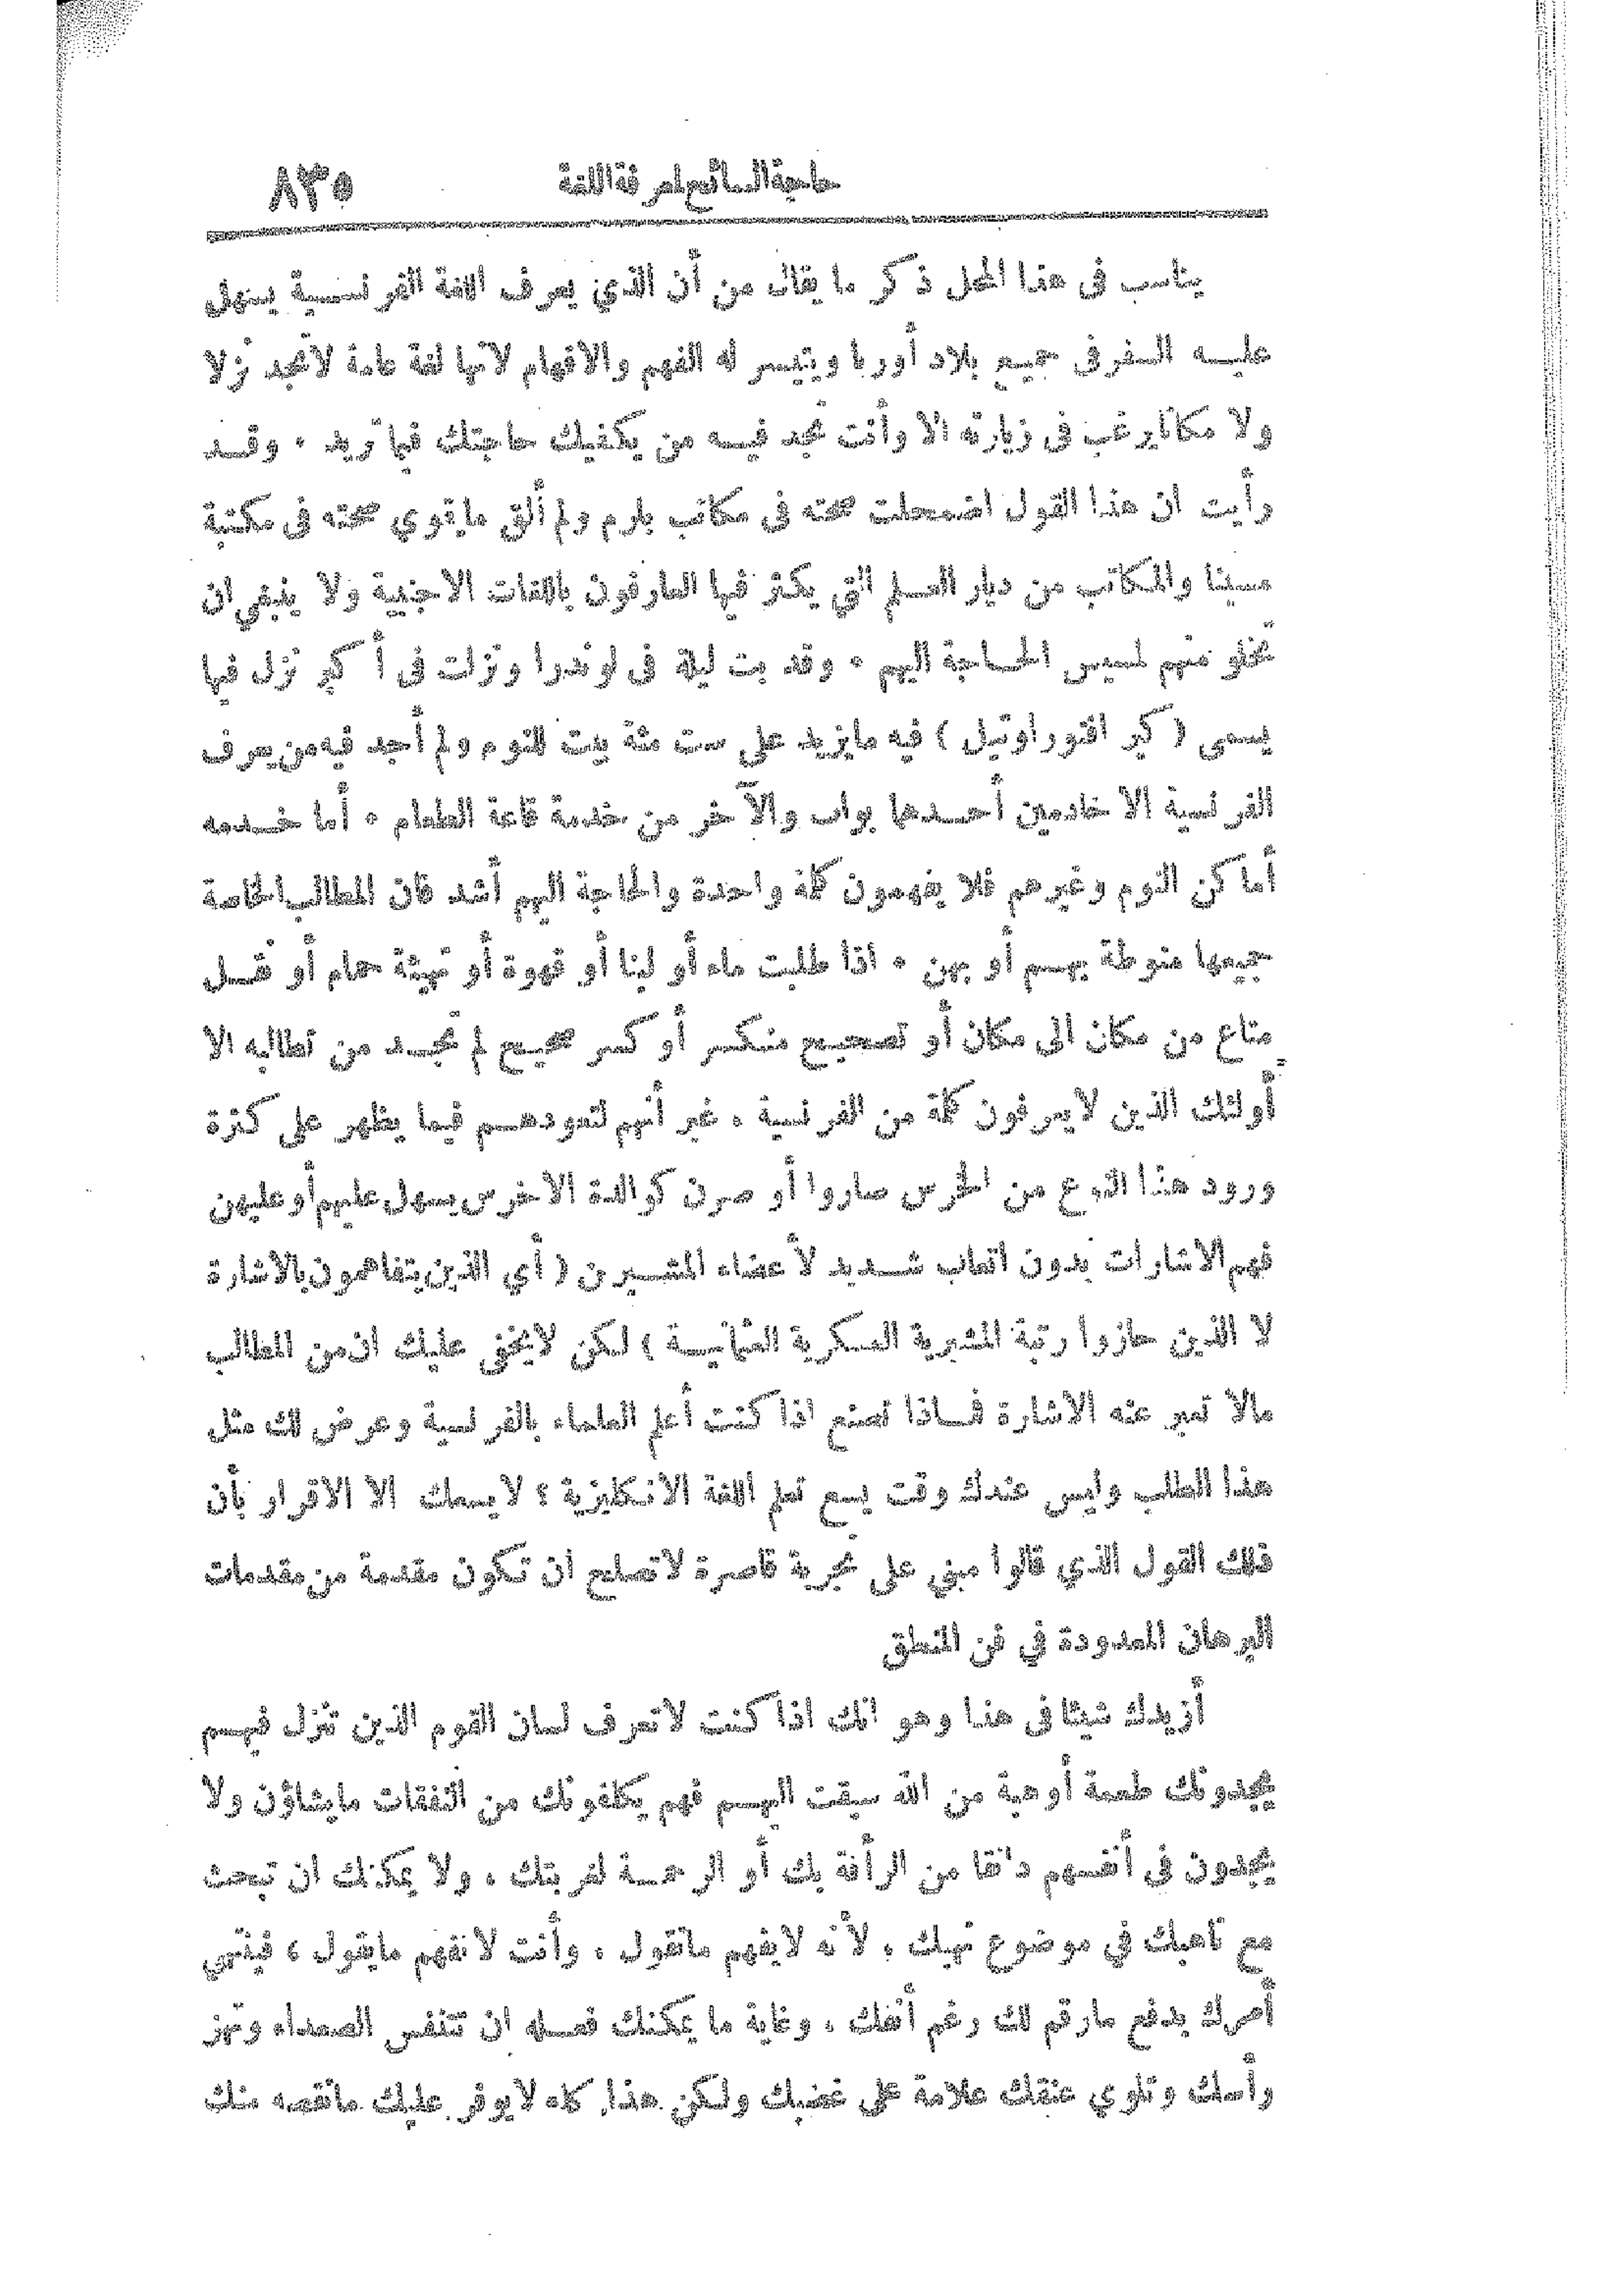 حاجة السائح لمعرفة اللغة ٨٣٥
يناسب في هذا المحل ذكر ما يقال من أن الذي يعرف اللغة الفرنسية يسهل
عليه السفر في جميع بلاد أوربا ويتيسر له الفهم والافهام لانها لغة عامة لا تجد نُزلا
ولا مكانا يرغب في زيارته الا وأنت تجد فيه من يكفيك حاجتك فيما تريد . وقد
رأيت ان هذا القول اضمحلت صحته في مكاتب بلرم ولم ألق ما يقوي صحته في مكتبة
مسينا والمكاتب من ديار العلم التي يكثر فيها العارفون باللغات الاجنبية ولا ينبغي ان
تخلو منهم لمسيس الحاجة اليهم . وقد بت ليلة في لوندرا ونزلت في أكبر نزل فيها
يسمى ( كبر افتور اوتيل ) فيه ما يزيد على ست مئة بيت للنوم ولم أجد فيه من يعرف
الفرنسية الا خادمين أحدهما بواب والآخر من خدمة قاعة الطعام . أما خدمه
أماكن النوم وغيرهم فلا يفهمون كلمة واحدة والحاجة اليهم أشد فان المطالب الخاصة
جميعها منوطة بهم أو بهن . اذا طلبت ماء أو لبنا أو قهوة أو تهيئة حمام أو نقل
متاع من مكان الى مكان أو تصحيح منكسر أو كسر صحيح لم تجد من تطالبه الا
أولئك الذين لا يعرفون كلمة من الفرنسية ، غير أنهم لتعودهم فيما يظهر على كثرة
ورود هذا النوع من الخرس صاروا أو صرن كوالدة الاخرس يسهل عليهم أو عليهن
فهم الاشارات بدون اتعاب شديد لأعضاء المشيرين ( أي الذين يتفاهمون بالاشارة
لا الذين حازوا رتبة المشيرية العسكرية العثمانية ) لكن لا يخفى عليك ان من المطالب
مالا تعبر عنه الاشارة فماذا تصنع اذا كنت أعلم العلماء بالفرنسية وعرض لك مثل
هذا الطلب وليس عندك وقت يسع تعلم اللغة الانكليزية ؟ لا يسعك الا الاقرار بأن
ذلك القول الذي قالوا مبني على تجربة قاصرة لا تصلح ان تكون مقدمة من مقدمات
البرهان المعدودة في فن المنطق
أزيدك شيئا في هذا وهو انك اذا كنت لا تعرف لسان القوم الذين تنزل فيهم
يجدونك طعمة أو هبة من الله سيقت اليهم فهم يكلفونك من النفقات ما يشاؤن ولا
يجدون في أنفسهم دافعا من الرأفة بك أو الرحمة لغربتك ، ولا يمكنك ان تبحث
مع ناهبك في موضوع نهبك ، لأنه لا يفهم ما تقول ، وأنت لا تفهم ما يقول ، فينتهي
أمرك بدفع ما رقم لك رغم أنفك ، وغاية ما يمكنك فعله ان تتنفس الصعداء وتهز
رأسك وتلوي عنقك علامة على غضبك ولكن هذا كله لا يوفر عليك ما تقصه منك